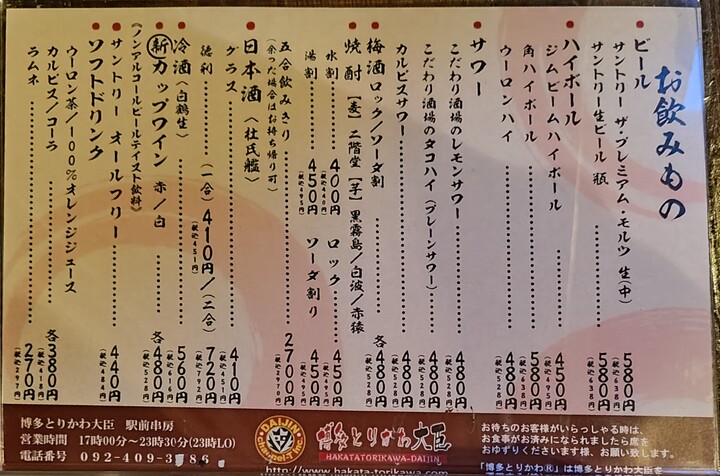 お飲みもの
ビール
サントリー ザ・プレミアム・モルツ 生(中) 580円
(税込638円)
サントリー生ビール 瓶 580円
(税込638円)
ハイボール
ジムビームハイボール 450円
(税込495円)
角ハイボール 580円
(税込638円)
ウーロンハイ 480円
(税込528円)
サワー
こだわり酒場のレモンサワー 480円
(税込528円)
こだわり酒場のタコハイ(プレーンサワー) 480円
(税込528円)
カルピスサワー 480円
(税込528円)
梅酒 ロック/ソーダ割 各480円
(税込528円)
焼酎【麦】二階堂【芋】黒霧島/白波/赤猿
水割 400円 ロック 450円
(税込440円) (税込495円)
湯割 450円 ソーダ割り 450円
(税込495円) (税込495円)
五合飲みきり 2700円
(余った場合はお持ち帰り可) (税込2970円)
日本酒(杜氏鑑)
グラス 410円
(税込451円)
徳利 (一合)410円/(二合)720円
(税込451円) (税込792円)
冷酒(白鶴生) 560円
(税込616円)
新 カップワイン 赤/白 各480円
(税込528円)
《ノンアルコールビールテイスト飲料》
サントリー オールフリー 440円
(税込484円)
ソフトドリンク
ウーロン茶/100%オレンジジュース
カルピス/コーラ 各380円
(税込418円)
ラムネ 270円
(税込297円)
博多とりかわ大臣 駅前串房
営業時間 17時00分〜23時30分(23時LO)
電話番号 092-409-3186
DAIJIN
博多とりかわ大臣
HAKATATORIKAWA-DAIJIN
http://www.hakata-torikawa.com
お待ちのお客様がいらっしゃる時は、
お食事がお済みになられましたら席を
おゆずりくださいます様、お願い致します。
「博多とりかわ®」は博多とりかわ大臣